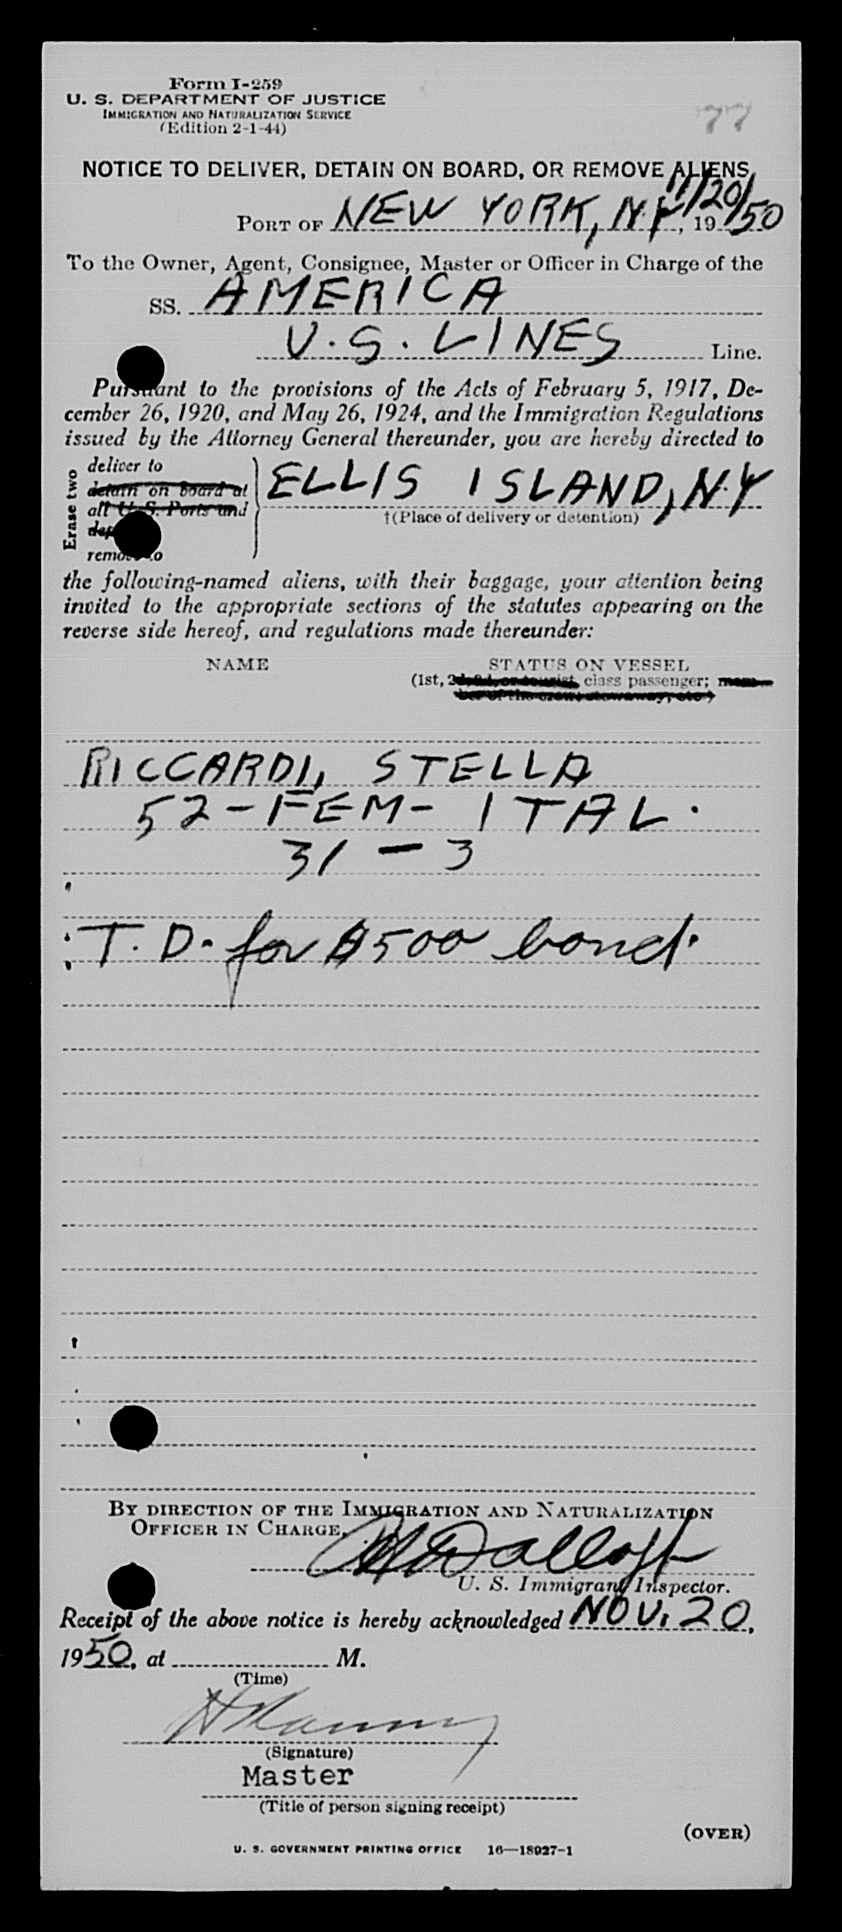 77
Form I-259
U. S. DEPARTMENT OF JUSTICE
IMMIGRATION AND NATURALIZATION SERVICE
(Edition 2-1-44)
NOTICE TO DELIVER, DETAIN ON BOARD, OR REMOVE ALIENS
PORT OF NEW YORK, N.Y, 11/20/50 19
To the Owner, Agent, Consignee, Master or Officer in Charge of the
SS. AMERICA
U.S. LINES Line.
Pursuant to the provisions of the Acts of February 5, 1917, De-
cember 26, 1920, and May 26, 1924, and the Immigration Regulations
issued by the Attorney General thereunder, you are hereby directed to
Erase two
deliver to
detain on board at
all U. S. Ports and
remove to
ELLIS ISLAND, N.Y
†(Place of delivery or detention)
the following-named aliens, with their baggage, your attention being
invited to the appropriate sections of the statutes appearing on the
reverse side hereof, and regulations made thereunder:
NAME STATUS ON VESSEL
(1st, 2d, 3d, or tourist, class passenger; mem-
ber of the crew, stowaway, etc.)
RICCARDI, STELLA
52-FEM-ITAL.
31-3
T.D. for $500 bond.
BY DIRECTION OF THE IMMIGRATION AND NATURALIZATION
OFFICER IN CHARGE,
U. S. Immigrant Inspector.
Receipt of the above notice is hereby acknowledged NOV. 20,
1950, at M.
(Time)
(Signature)
Master
(Title of person signing receipt)
(OVER)
U. S. GOVERNMENT PRINTING OFFICE 16—18927-1